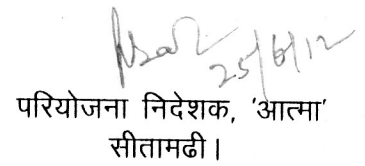 25/6/12
परियोजना निदेशक, 'आत्मा'
सीतामढी।